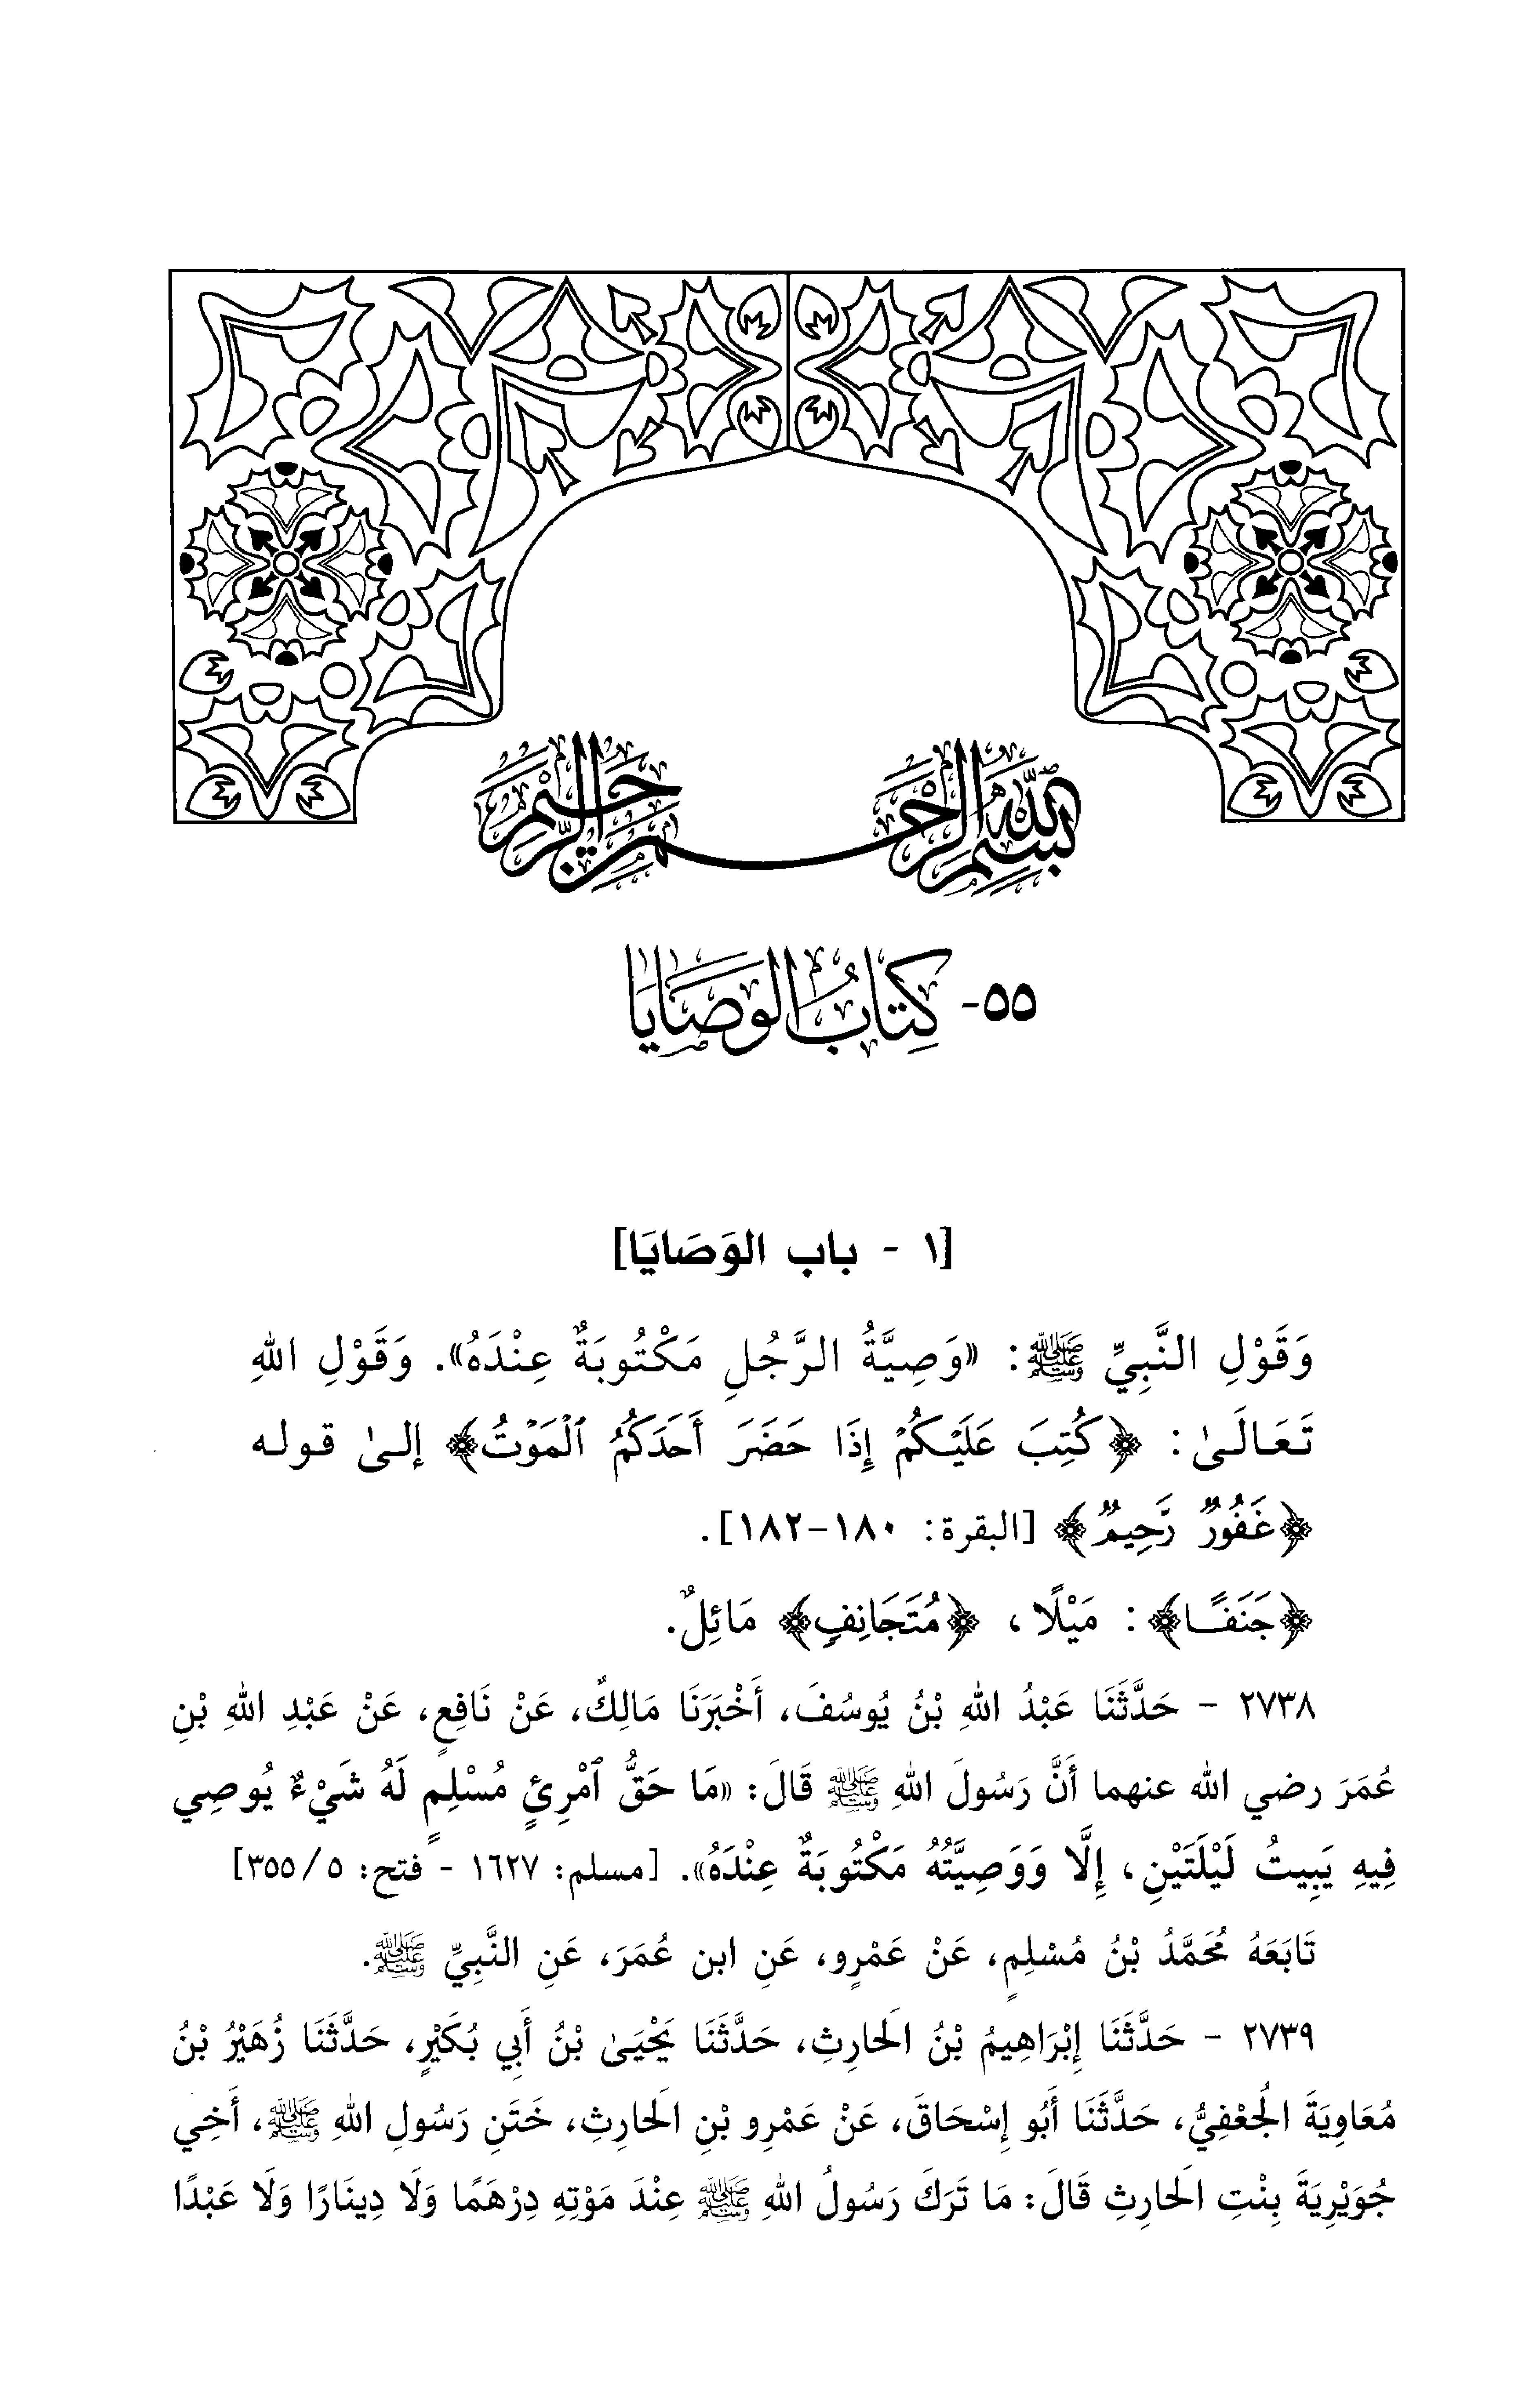 بِسْمِ اللهِ الرَّحْمَنِ الرَّحِيمِ
٥٥- كِتَابُ الوَصَايَا
[١ - باب الوَصَايَا]
وَقَوْلِ النَّبِيِّ ﷺ: «وَصِيَّةُ الرَّجُلِ مَكْتُوبَةٌ عِنْدَهُ». وَقَوْلِ اللهِ
تَعَالَىٰ: ﴿كُتِبَ عَلَيْكُمْ إِذَا حَضَرَ أَحَدَكُمُ ٱلْمَوْتُ﴾ إلىٰ قوله
﴿غَفُورٌ رَّحِيمٌ﴾ [البقرة: ١٨٠-١٨٢].
﴿جَنَفًا﴾: مَيْلًا، ﴿مُتَجَانِفٍ﴾ مَائِلٌ.
٢٧٣٨ - حَدَّثَنَا عَبْدُ اللهِ بْنُ يُوسُفَ، أَخْبَرَنَا مَالِكٌ، عَنْ نَافِعٍ، عَنْ عَبْدِ اللهِ بْنِ
عُمَرَ رضي الله عنهما أَنَّ رَسُولَ اللهِ ﷺ قَالَ: «مَا حَقُّ ٱمْرِئٍ مُسْلِمٍ لَهُ شَيْءٌ يُوصِي
فِيهِ يَبِيتُ لَيْلَتَيْنِ، إِلَّا وَوَصِيَّتُهُ مَكْتُوبَةٌ عِنْدَهُ». [مسلم: ١٦٢٧ - فتح: ٥/ ٣٥٥]
تَابَعَهُ مُحَمَّدُ بْنُ مُسْلِمٍ، عَنْ عَمْرٍو، عَنِ ابن عُمَرَ، عَنِ النَّبِيِّ ﷺ.
٢٧٣٩ - حَدَّثَنَا إِبْرَاهِيمُ بْنُ الَحارِثِ، حَدَّثَنَا يَحْيَىٰ بْنُ أَبِي بُكَيْرٍ، حَدَّثَنَا زُهَيْرُ بْنُ
مُعَاوِيَةَ الُجعْفِيُّ، حَدَّثَنَا أَبُو إِسْحَاقَ، عَنْ عَمْرِو بْنِ الَحارِثِ، خَتَنِ رَسُولِ اللهِ ﷺ، أَخِي
جُوَيْرِيَةَ بِنْتِ الَحارِثِ قَالَ: مَا تَرَكَ رَسُولُ اللهِ ﷺ عِنْدَ مَوْتِهِ دِرْهَمًا وَلَا دِينَارًا وَلَا عَبْدًا